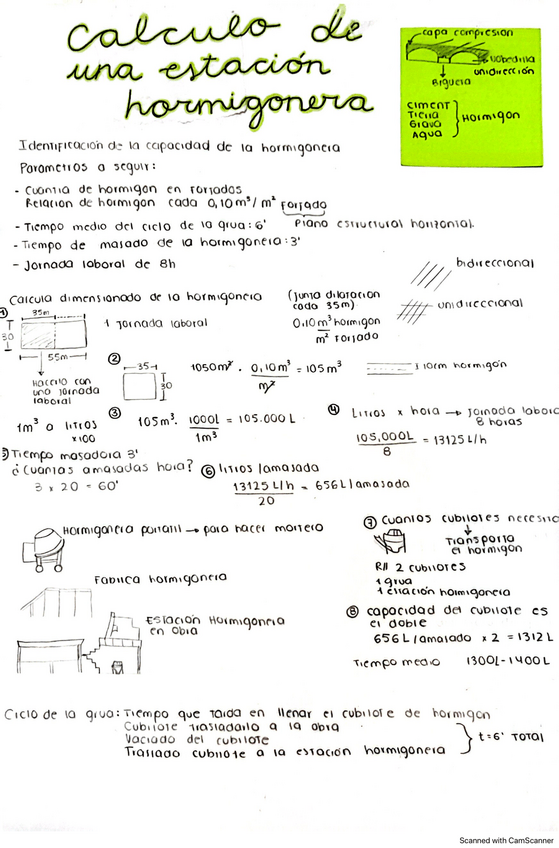 Calculo de
una estación
hormigonera
capa compresion
Vobedilla
unidirección
Bigueta
Ciment
Tierra
Grava
Agua
Hormigon
Identificación de la capacidad de la hormigonera
Parametros a seguir:
- Cuantia de hormigon en forjados
Relacion de hormigon cada 0,10 m³/m² forjado
- Tiempo medio del ciclo de la grua: 6' Plano estructural horizontal.
- Tiempo de masado de la hormigonera: 3'
- Jornada laboral de 8h
bidireccional
unidireccional
Calcula dimensionado de la hormigonera
(Junta dilatacion
cada 35m)
0,10 m³ hormigon
m² Forjado
①
35m
30
55m
1 Jornada laboral
Hacerlo con
una jornada
laboral
②
35
30
1050m² · 0,10m³/m² = 105 m³
10cm hormigón
③
1m³ a litros
x100
105m³. 1000L/1m³ = 105.000 L
④ Litros x hora → Jornada laboral
8 horas
105,000L/8 = 13125 L/h
⑤ Tiempo masadora 3'
¿Cuantas amasadas hora?
3 x 20 = 60'
⑥ litros/amasada
13125 L/h/20 = 656L/amasada
Hormigonera portatil → para hacer mortero
Fabrica hormigonera
Estación Hormigonera
en obra
⑦ Cuantos cubilotes necesito
Transporta
el hormigon
R// 2 cubilotes
1 grua
1 estación hormigonera
⑧ capacidad del cubilote es
el doble
656 L/amasado x 2 = 1312L
Tiempo medio 1300L-1400L
Ciclo de la grua: Tiempo que tarda en llenar el cubilote de hormigon
Cubilote trasladarlo a la obra
Vaciado del cubilote
Traslado cubilote a la estación hormigonera
t=6' Total
Scanned with CamScanner